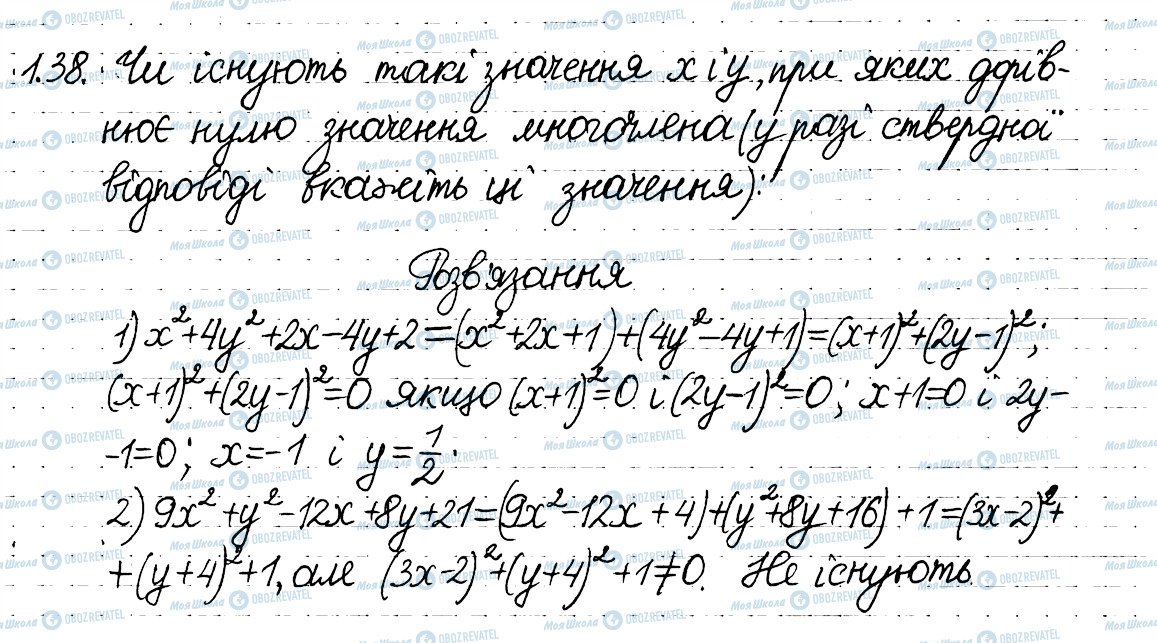 1.38. Чи існують такі значення x і y, при яких дорів-
нює нулю значення многочлена (у разі ствердної
відповіді вкажіть ці значення):
Розв'язання
1) x²+4y²+2x-4y+2=(x²+2x+1)+(4y²-4y+1)=(x+1)²+(2y-1)²;
(x+1)²+(2y-1)²=0 якщо (x+1)²=0 і (2y-1)²=0; x+1=0 і 2y-
-1=0; x=-1 і y=1/2.
2) 9x²+y²-12x+8y+21=(9x²-12x+4)+(y²+8y+16)+1=(3x-2)²+
+(y+4)²+1, але (3x-2)²+(y+4)²+1≠0. Не існують.